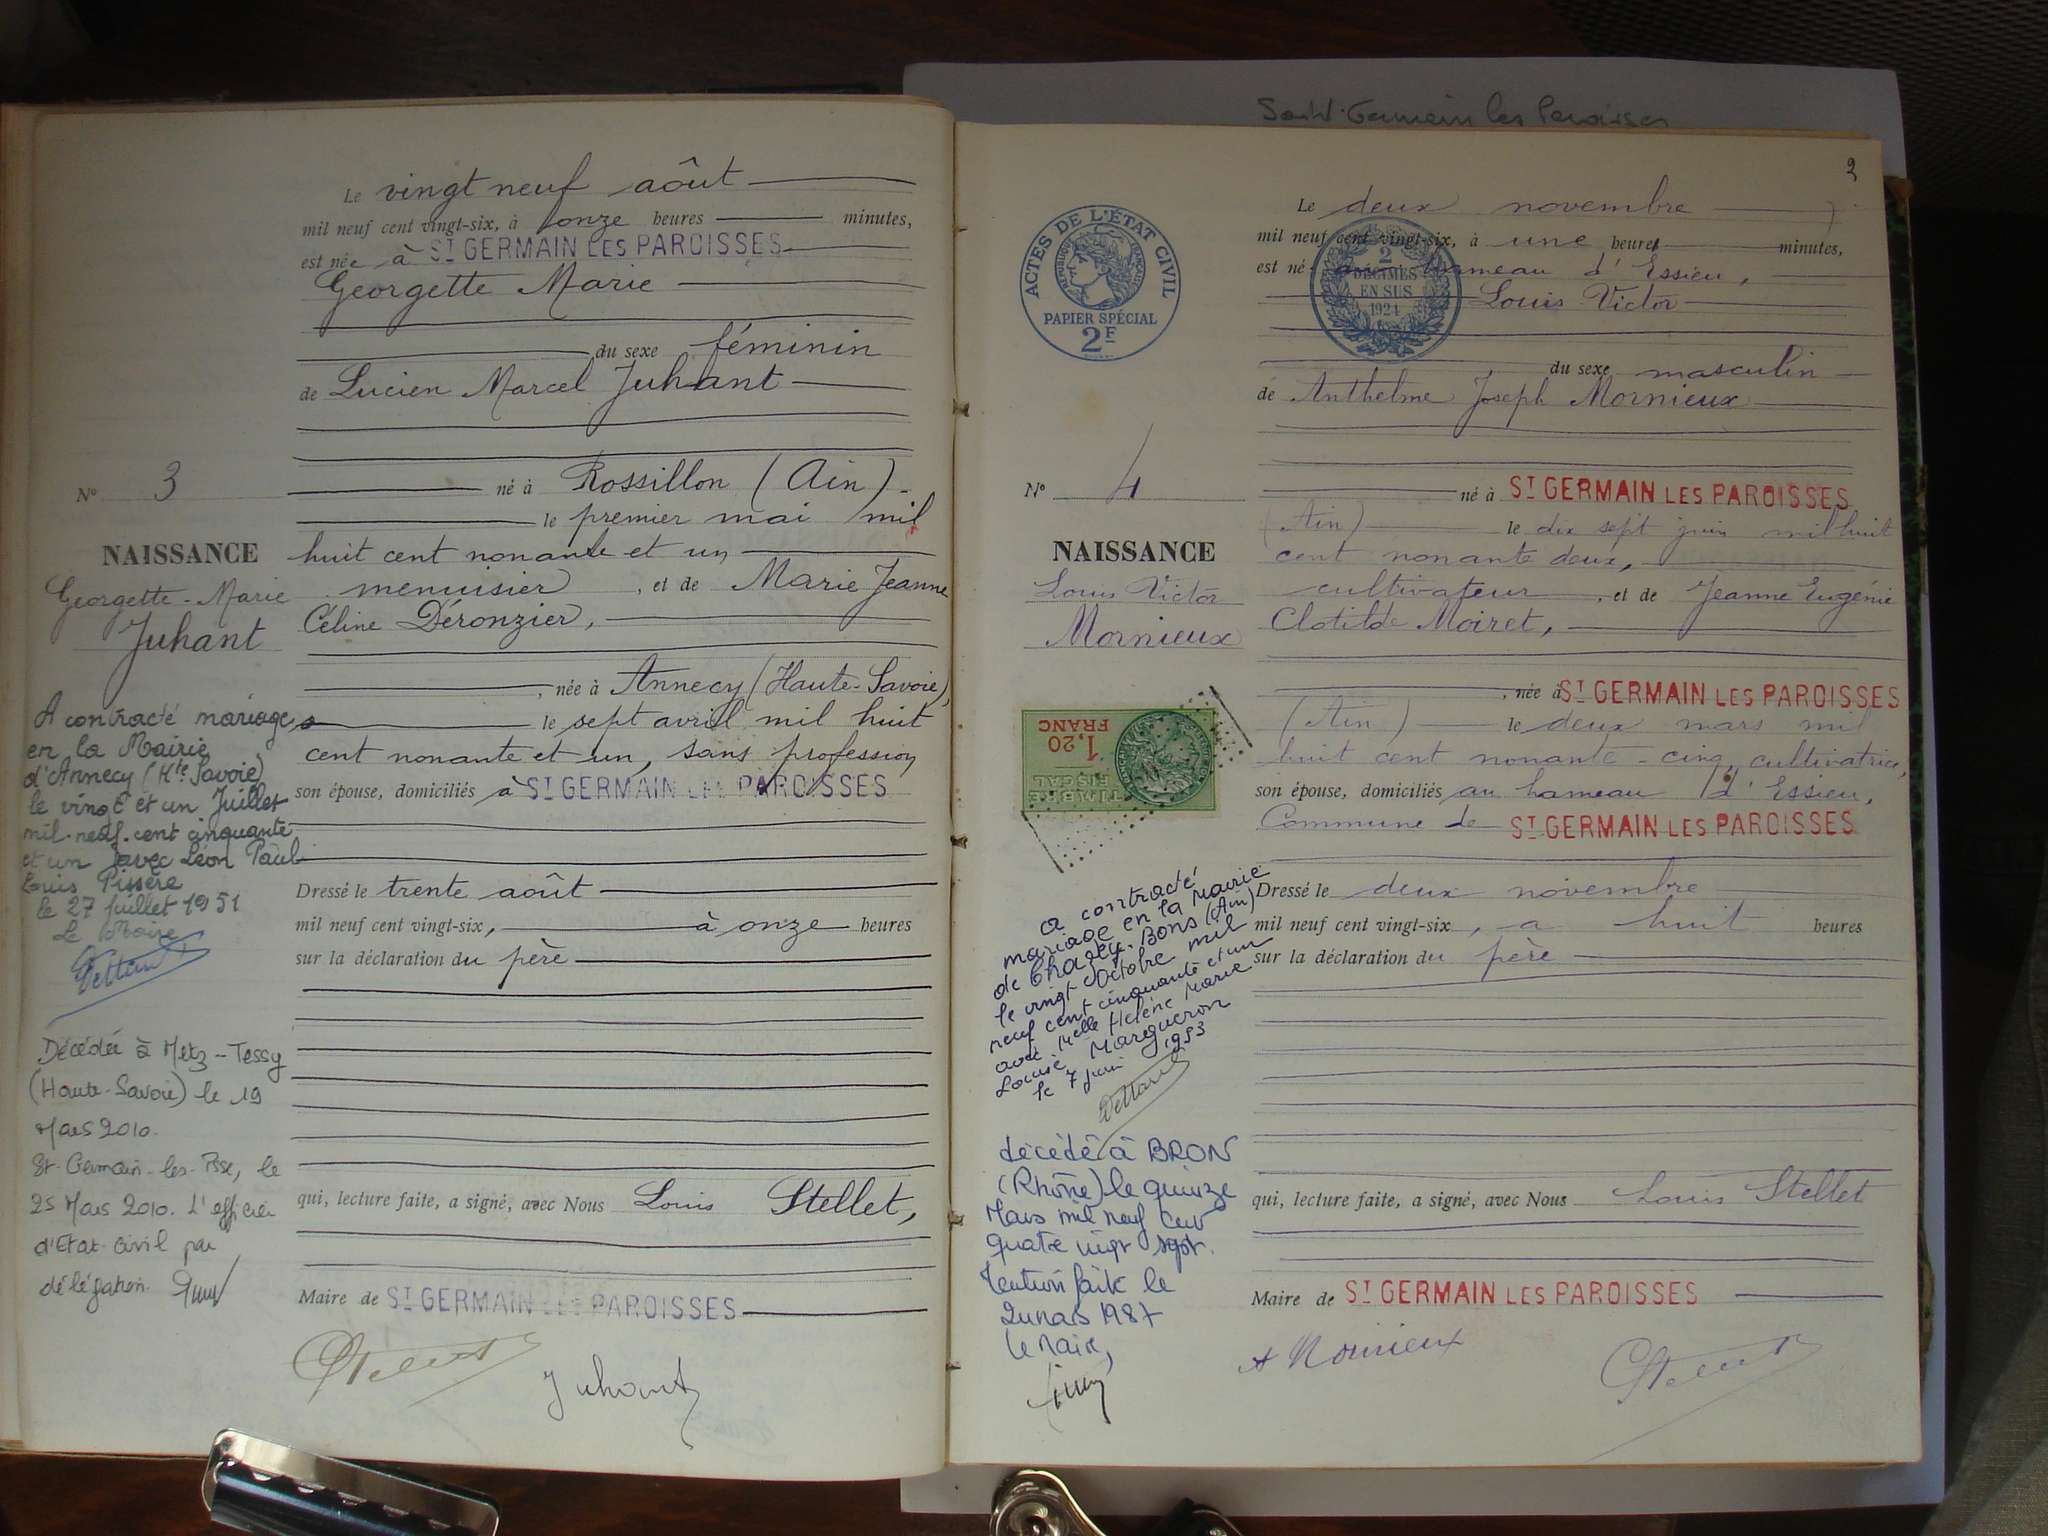 Saint-Germain les Paroisses
Le vingt neuf août
mil neuf cent vingt-six, à onze heures minutes,
est née à ST GERMAIN LES PAROISSES
Georgette Marie
du sexe féminin
de Lucien Marcel Juhant
né à Rossillon (Ain)
le premier mai mil
huit cent nonante et un
menuisier, et de Marie Jeanne
Céline Déronzier,
, née à Annecy (Haute-Savoie),
le sept avril mil huit
cent nonante et un, sans profession
son épouse, domiciliés à ST GERMAIN LES PAROISSES
Dressé le trente août
mil neuf cent vingt-six, à onze heures
sur la déclaration du père
qui, lecture faite, a signé, avec Nous Louis Stellet,
Maire de ST GERMAIN LES PAROISSES
Stellet
Juhant
No 3
NAISSANCE
Georgette-Marie
Juhant
A contracté mariage
en la Mairie
d'Annecy (Hte Savoie)
le vingt et un Juillet
mil-neuf-cent cinquante
et un avec Léon Paul
Louis Pissère
le 27 juillet 1951
Le Maire
Décédée à Metz-Tessy
(Haute-Savoie) le 19
Mars 2010.
St-Germain-les-Psse, le
25 Mars 2010. L'officier
d'Etat-Civil par
délégation.
2
ACTES DE L'ÉTAT CIVIL
RÉPUBLIQUE FRANÇAISE
PAPIER SPÉCIAL
2F
2
DÉCIMES
EN SUS
1924
Le deux novembre
mil neuf cent vingt-six, à une heure minutes,
est né au hameau d'Essieu,
Louis Victor
du sexe masculin
de Anthelme Joseph Mornieux
né à ST GERMAIN LES PAROISSES
(Ain) le dix sept juin mil huit
cent nonante deux,
cultivateur, et de Jeanne Eugénie
Clotilde Moiret,
, née à ST GERMAIN LES PAROISSES
(Ain) le deux mars mil
huit cent nonante-cinq, cultivatrice,
son épouse, domiciliés au hameau d'Essieu,
Commune de ST GERMAIN LES PAROISSES
Dressé le deux novembre
mil neuf cent vingt-six, a huit heures
sur la déclaration du père
qui, lecture faite, a signé, avec Nous Louis Stellet
Maire de ST GERMAIN LES PAROISSES
A Mornieux
Stellet
No 4
NAISSANCE
Louis Victor
Mornieux
TIMBRE
FISCAL
1,20
FRANC
a contracté
mariage en la Mairie
de Chazey-Bons (Ain)
le vingt Octobre mil
neuf cent cinquante et un
avec Melle Hélène Marie
Louise Margueron
le 7 juin 1953
décédé à BRON
(Rhône) le quinze
Mars mil neuf cent
quatre vingt sept.
Mention faite le
mars 1987
le Maire,